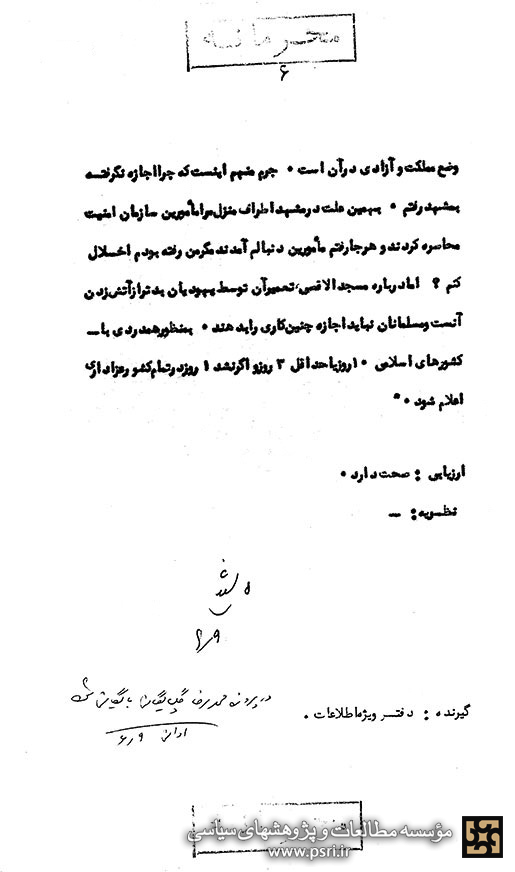 محرمانه
۶
وضع مملکت و آزادی در آن است ۰ جرم متهم اینست که چرا اجازه نگرفته
بمشهد رفتم ۰ بهمین علت در مشهد اطراف منزل مرا مأمورین سازمان امنیت
محاصره کردند و هرجا رفتم مأمورین دنبالم آمدند مگر من رفته بودم اخلال
کنم ؟ اما درباره مسجد الاقصی، تعمیر آن توسط یهودیان بدتر از آتش زدن
آنست و مسلمانان نباید اجازه چنین کاری را بدهند ۰ بمنظور همدردی با ــ
کشورهای اسلامی ۱۰ روز یا حداقل ۳ روز و اگر نشد ۱ روز در تمام کشور عزاداری
اعلام شود ۰"
ارزیابی : صحت دارد ۰
نظریه : ــ
۶٫۹
در پرونده محمدرضا گلپایگانی بایگانی شود
۶٫۹
گیرنده : دفتر ویژه اطلاعات ۰
مؤسسه مطالعات و پژوهشهای سیاسی
www.psri.ir